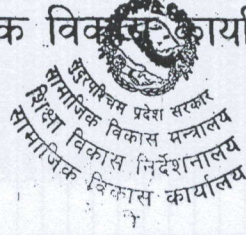 क विकास कार्या
सुदूरपश्चिम प्रदेश सरकार
सामाजिक विकास मन्त्रालय
शिक्षा विकास निर्देशनालय
सामाजिक विकास कार्यालय